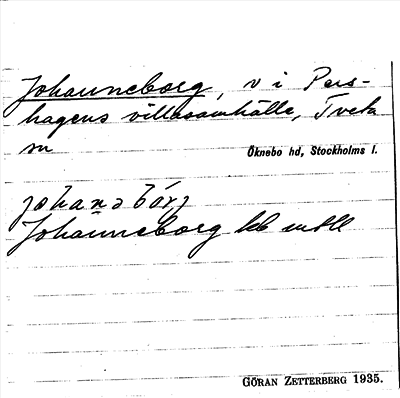 Johanneborg, v i Pers-
hagens villasamhälle, Tveta
sn Öknebo hd, Stockholms l.
johanəbórj
Johanneborg
GÖRAN ZETTERBERG 1935.